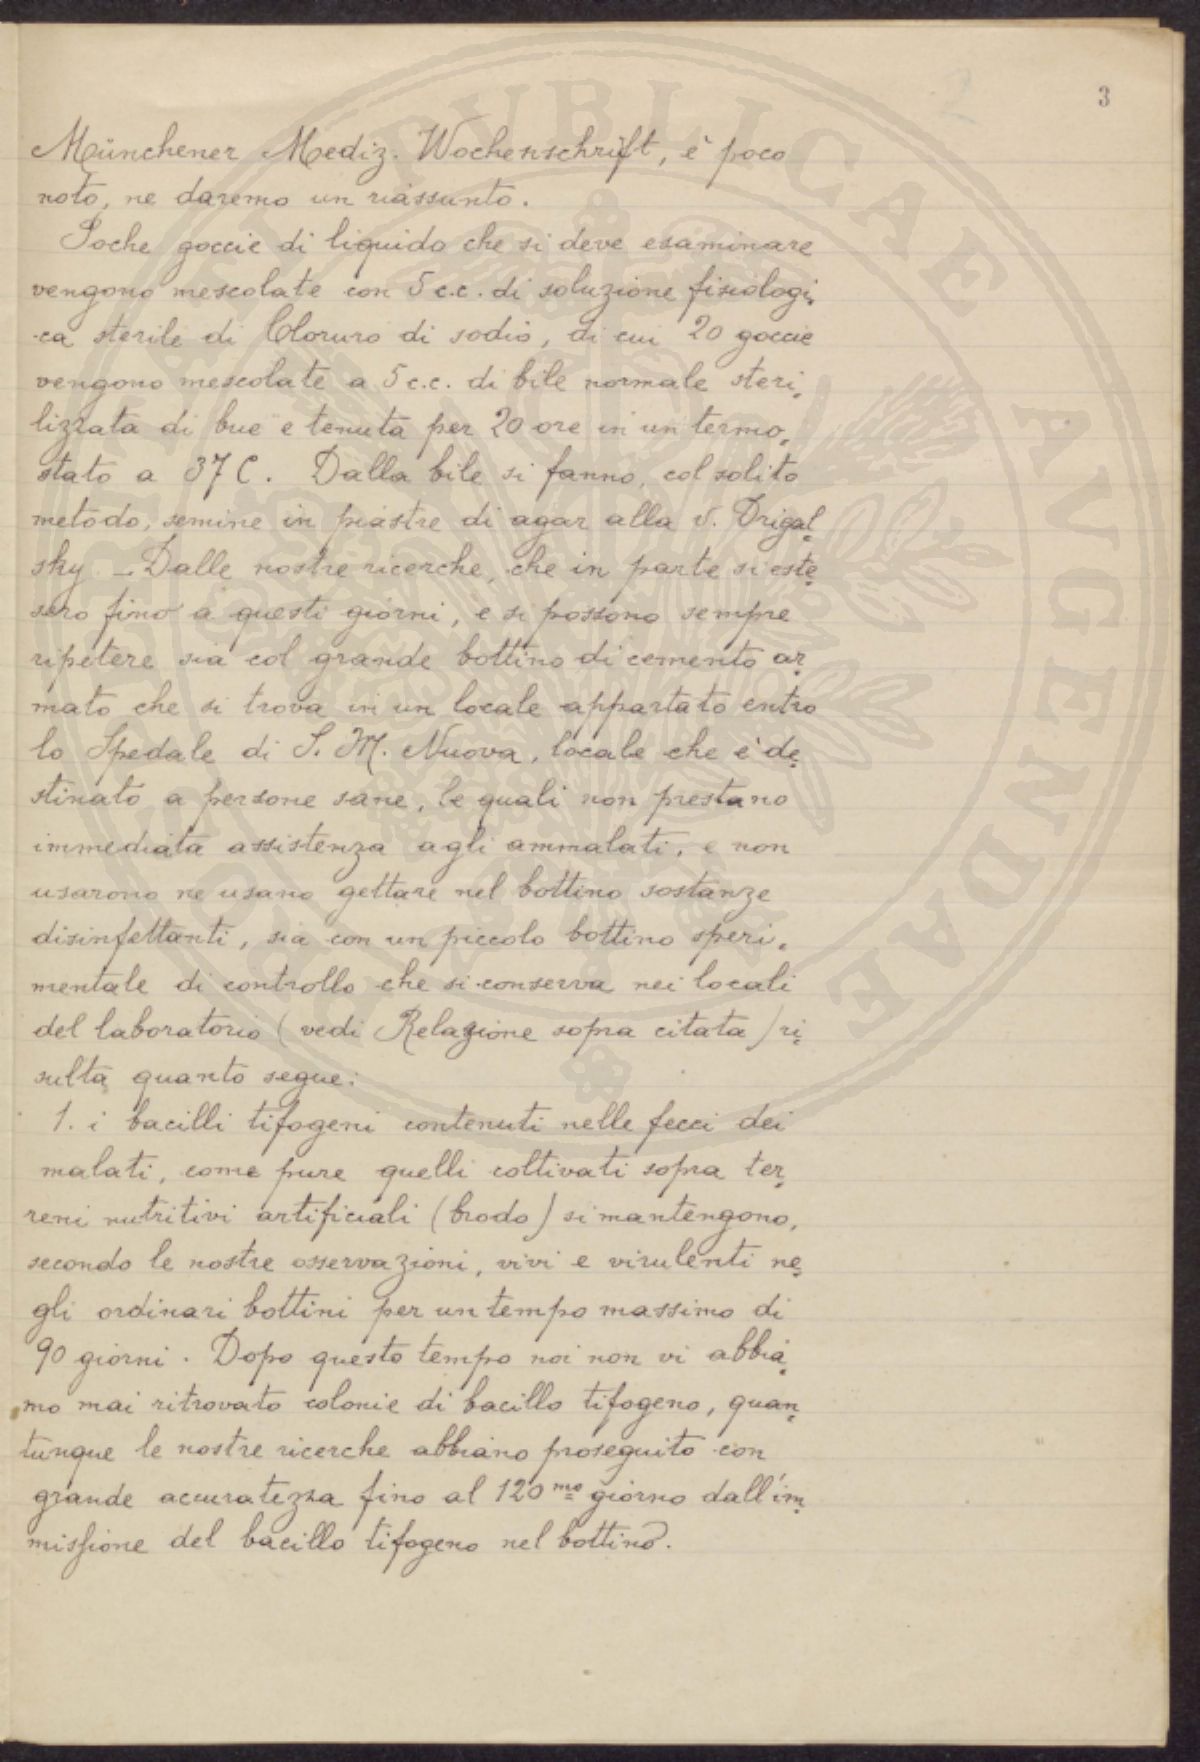 3
Münchener Mediz. Wochenschrift, è poco
noto, ne daremo un riassunto.
Poche goccie di liquido che si deve esaminare
vengono mescolate con 5 c.c. di soluzione fisiologi-
-ca sterile di Cloruro di sodio, di cui 20 goccie
vengono mescolate a 5 c.c. di bile normale steri-
lizzata di bue e tenuta per 20 ore in un termo-
stato a 37 C. Dalla bile si fanno, col solito
metodo, semine in piastre di agar alla v. Drigal-
sky. — Dalle nostre ricerche, che in parte si este-
sero fino a questi giorni, e si possono sempre
ripetere sia col grande bottino di cemento ar-
mato che si trova in un locale appartato entro
lo Spedale di S. M. Nuova, locale che è de-
stinato a persone sane, le quali non prestano
immediata assistenza agli ammalati, e non
usarono ne usano gettare nel bottino sostanze
disinfettanti, sia con un piccolo bottino speri-
mentale di controllo che si conserva nei locali
del laboratorio (vedi Relazione sopra citata) ri-
sulta quanto segue:
1. i bacilli tifogeni contenuti nelle fecci dei
malati, come pure quelli coltivati sopra ter-
reni nutritivi artificiali (brodo) si mantengono,
secondo le nostre osservazioni, vivi e virulenti ne-
gli ordinari bottini per un tempo massimo di
90 giorni. Dopo questo tempo noi non vi abbia-
mo mai ritrovato colonie di bacillo tifogeno, quan-
tunque le nostre ricerche abbiano proseguito con
grande accuratezza fino al 120mo giorno dall'im-
missione del bacillo tifogeno nel bottino.
PUBLICAE AUGENDAE